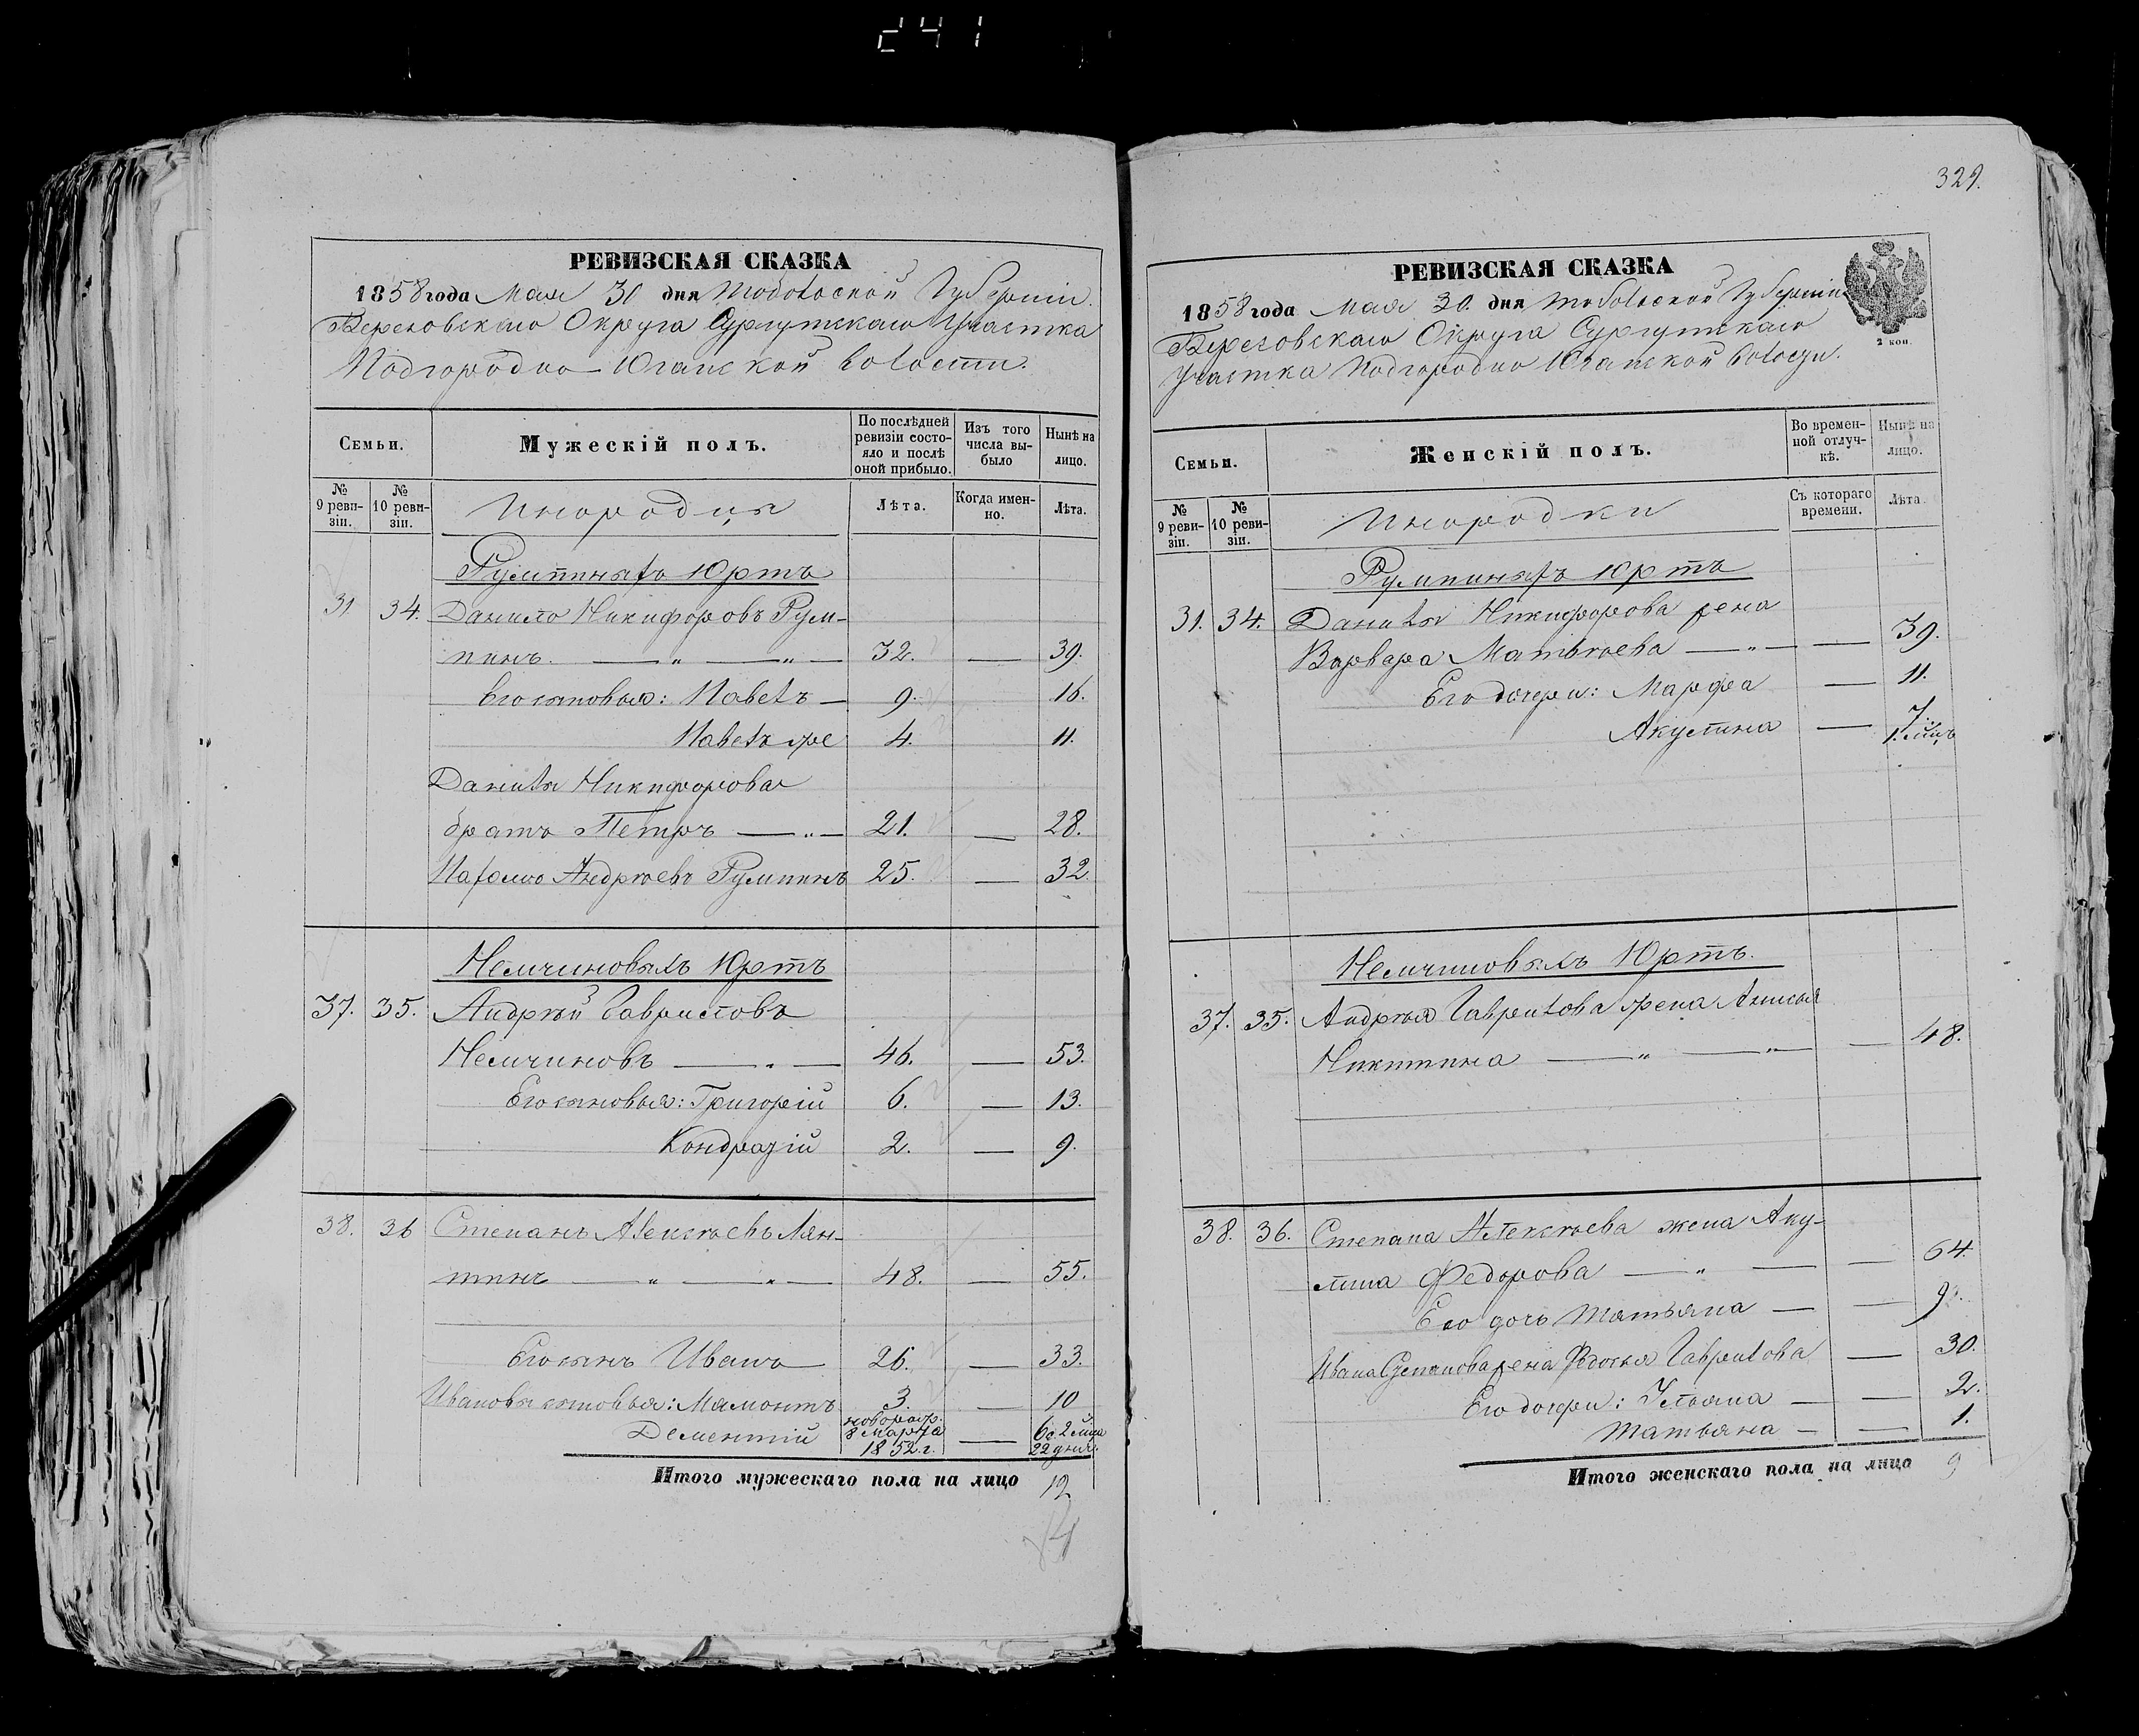 241
329.
РЕВИЗСКАЯ СКАЗКА
1858 года Мая 30 дня Тобольской Губерніи
Березовскаго Округа Сургутскаго Участка
Подгородно-Юганской волости.
Семьи.
Мужескій полъ.
По послѣдней ревизіи состояло и послѣ оной прибыло.
Изъ того числа выбыло
Нынѣ на лицо.
№ 9 ревизіи.
№ 10 ревизіи.
Инородцы
Лѣта.
Когда именно.
Лѣта.
Румпиныхъ Юртъ
31 34. Данило Никифоровъ Рум-
пинъ. — „ — „ — 32. — 39.
Его сыновья: Павелъ — 9. 16.
Павелъ же 4. 11.
Данилы Никифорова
братъ Петръ — „ — 21. — 28.
Андрѣевъ Румпинъ 25. — 32.
Немчиновыхъ Юртъ
37. 35. Андрѣй Гавриловъ
Немчиновъ — „ — 46. — 53.
Его сыновья: Григорій 6. — 13.
Кондратій 2. — 9.
38. 36 Степанъ Алексѣевъ Лян-
тинъ — „ — „ — 48. — 55.
Его сынъ Иванъ 26. — 33.
Ивановы сыновья: Мамонтъ 3. — 10
Дементій новорож. 8 Марта 1852 г. — 6 г. 2 м-ца 22 дня.
Итого мужескаго пола на лицо 12
РЕВИЗСКАЯ СКАЗКА
1858 года Мая 30. дня Тобольской Губерніи
Березовскаго Округа Сургутскаго
Участка Подгородно Юганской волости.
2 коп.
Семьи.
Женскій полъ.
Во временной отлучкѣ.
Нынѣ на лицо.
№ 9 ревизіи.
№ 10 ревизіи.
Инородки
Съ котораго времени.
Лѣта.
Румпиныхъ Юртъ
31. 34. Данилы Никифорова жена
Варвара Матвѣева — „ — — 39.
Его дочери: Марфа — 11.
Акулина — 7
Немчиновыхъ Юртъ.
37. 35. Андрѣя Гаврилова жена Анисья
Никитина — „ — „ — 48.
38. 36. Степана Алексѣева жена Аку-
лина Федорова — „ — — 64.
Его дочь Татьяна — — 9.
Ивана Степанова жена Федосья Гаврилова — 30.
Его дочери: Ульяна — — 2.
Татьяна — — 1.
Итого женскаго пола на лицо 9